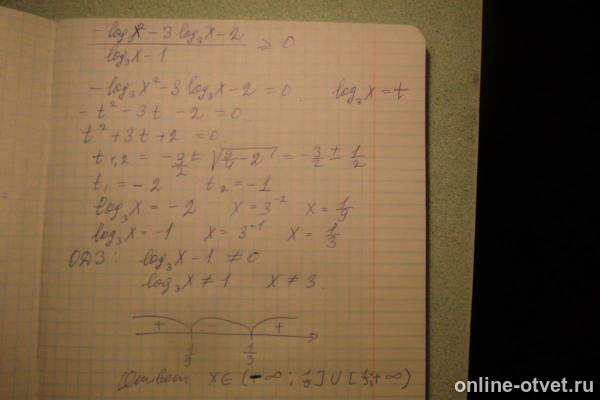 -log₃x² - 3 log₃x - 2
log₃x - 1
≥ 0
-log₃x² - 3 log₃x - 2 = 0 log₃x = t
-t² - 3t - 2 = 0
t² + 3t + 2 = 0
t₁,₂ = -3/2 ± √(9/4 - 2) = -3/2 ± 1/2
t₁ = -2 t₂ = -1
log₃x = -2 x = 3⁻² x = 1/9
log₃x = -1 x = 3⁻¹ x = 1/3
ОДЗ: log₃x - 1 ≠ 0
log₃x ≠ 1 x ≠ 3
+ - +
1/9 1/3
Ответ x ∈ (-∞; 1/9] ∪ [1/3; +∞)
online-otvet.ru